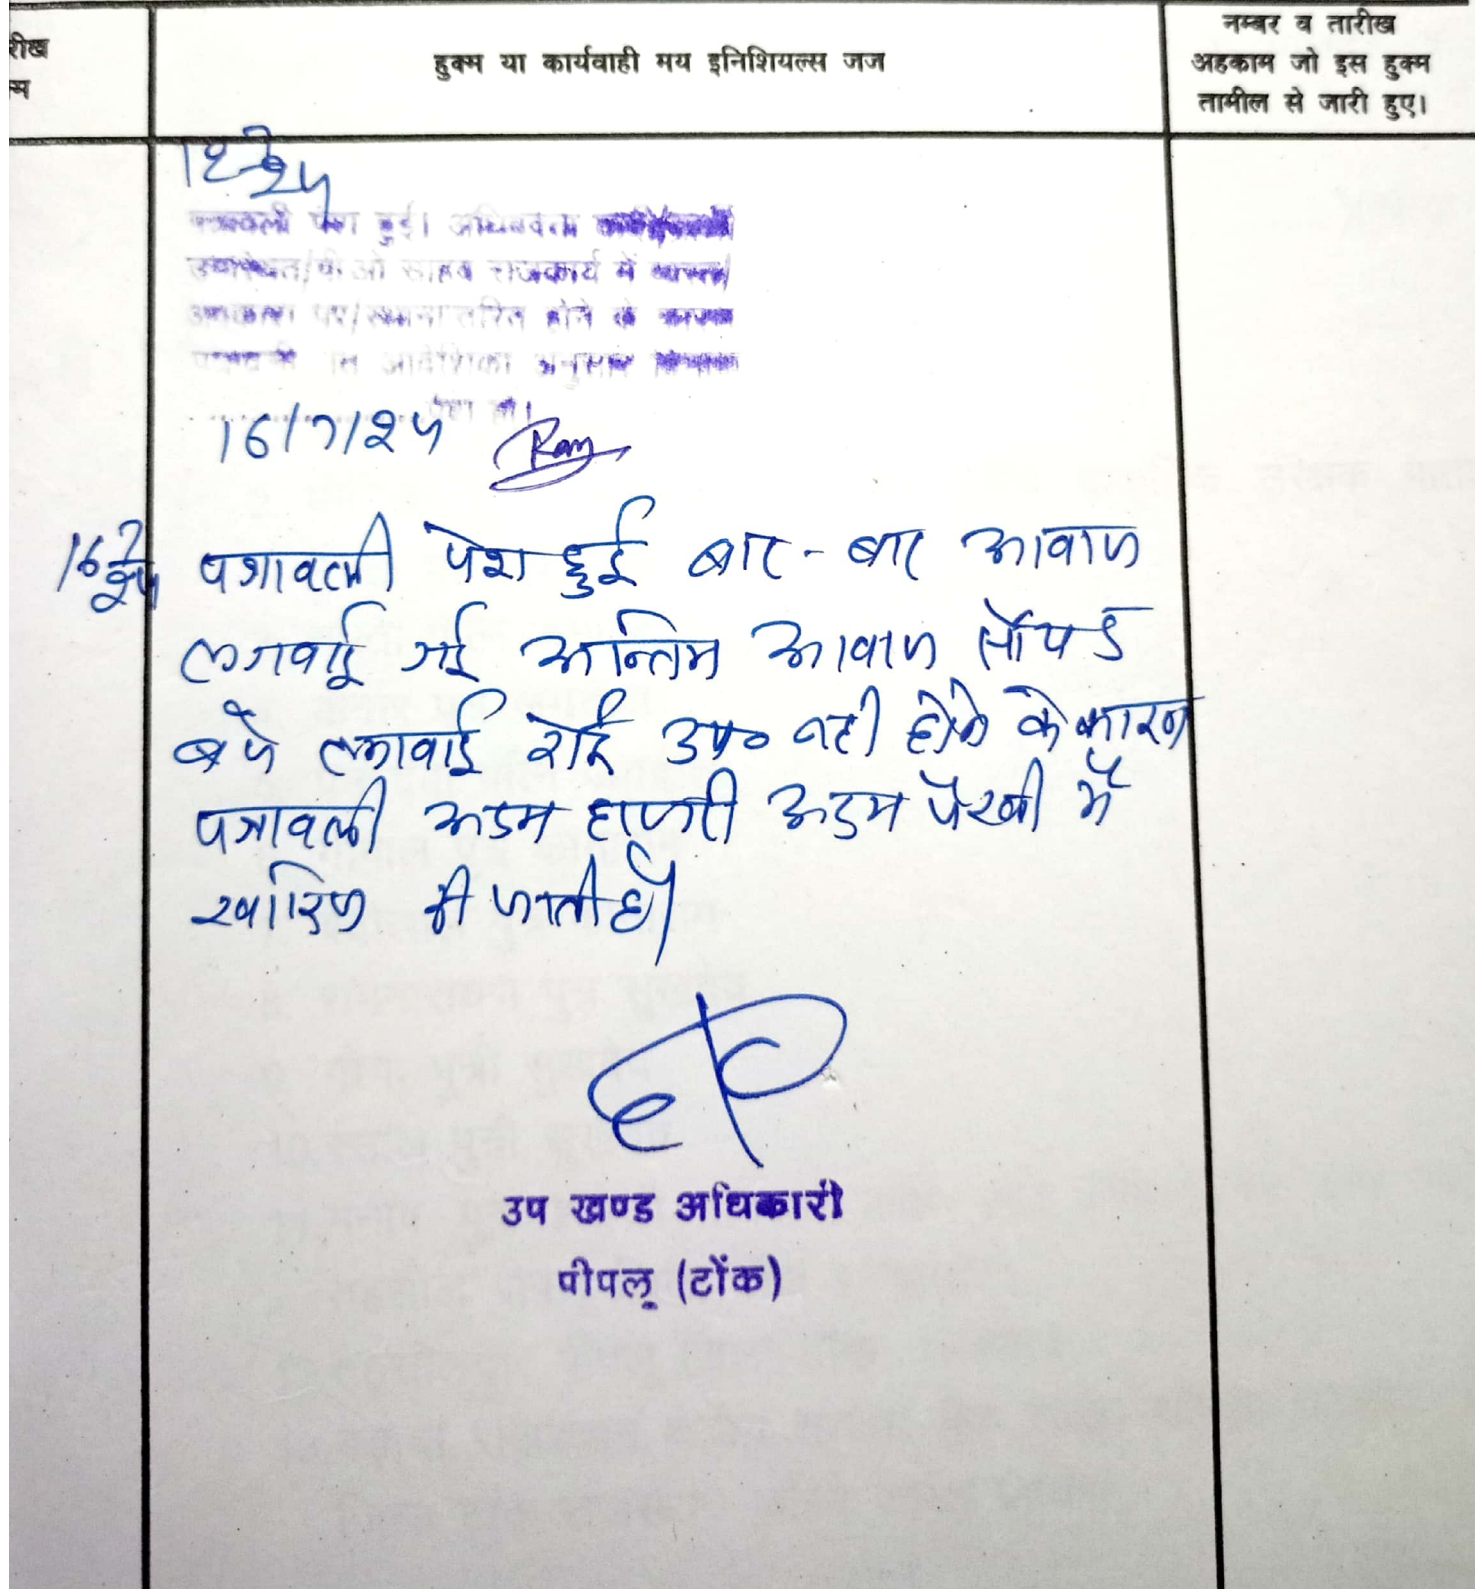 रीख
हुक्म या कार्यवाही मय इनिशियल्स जज
नम्बर व तारीख
अहकाम जो इस हुक्म
तामील से जारी हुए।
पत्रावली पेश हुई। अधिवक्ता
उपस्थित/पी.ओ साहब राजकार्य में व्यस्त/
अवकाश पर/स्थानान्तरित होने के कारण
पत्रावली आदेशिका अनुसार दिनांक
पेश हो।
16/7/24
16/7/24 पत्रावली पेश हुई बार-बार आवाज
लगवाई गई अन्तिम आवाज
बजे लगवाई कोई उप० नही होने के कारण
पत्रावली अदम हाजरी अदम पैरवी में
खारिज की जाती है।
उप खण्ड अधिकारी
पीपलू (टोंक)